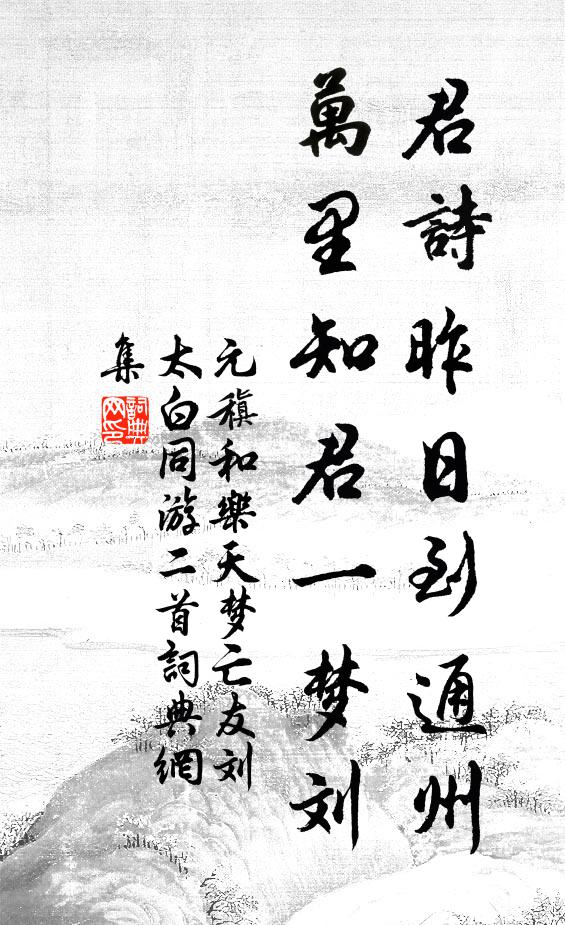 君詩昨日到通州
萬里知君一梦刘
元稹和樂天梦亡友刘
太白同游二首詞典網
集
詞典網印